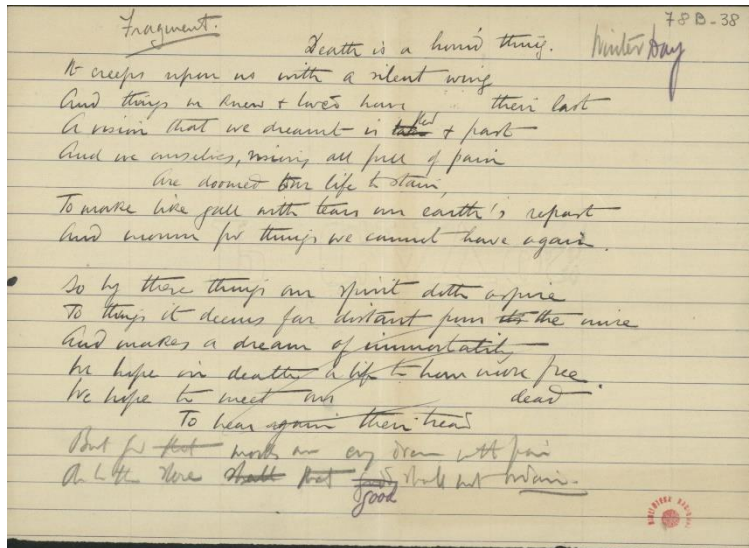 78B-38
Fragment.
Death is a horrid thing. Winter Day
It creeps upon us with a silent wing
And things we knew & loved have their last
A vision that we dreamt is fled & past
And we ourselves, all full of pain
Are doomed our life to stain,
To make like gall with tears our earth's repast
And mourn for things we cannot have again.
So by these things our spirit doth aspire
To things it deems far distant from its the mire
And makes a dream of immortality
We hope in death a life to know more free.
We hope to meet our dead
To hear again their tread
But for that our dream with pain
that shall not
good
BIBLIOTECA NACIONAL